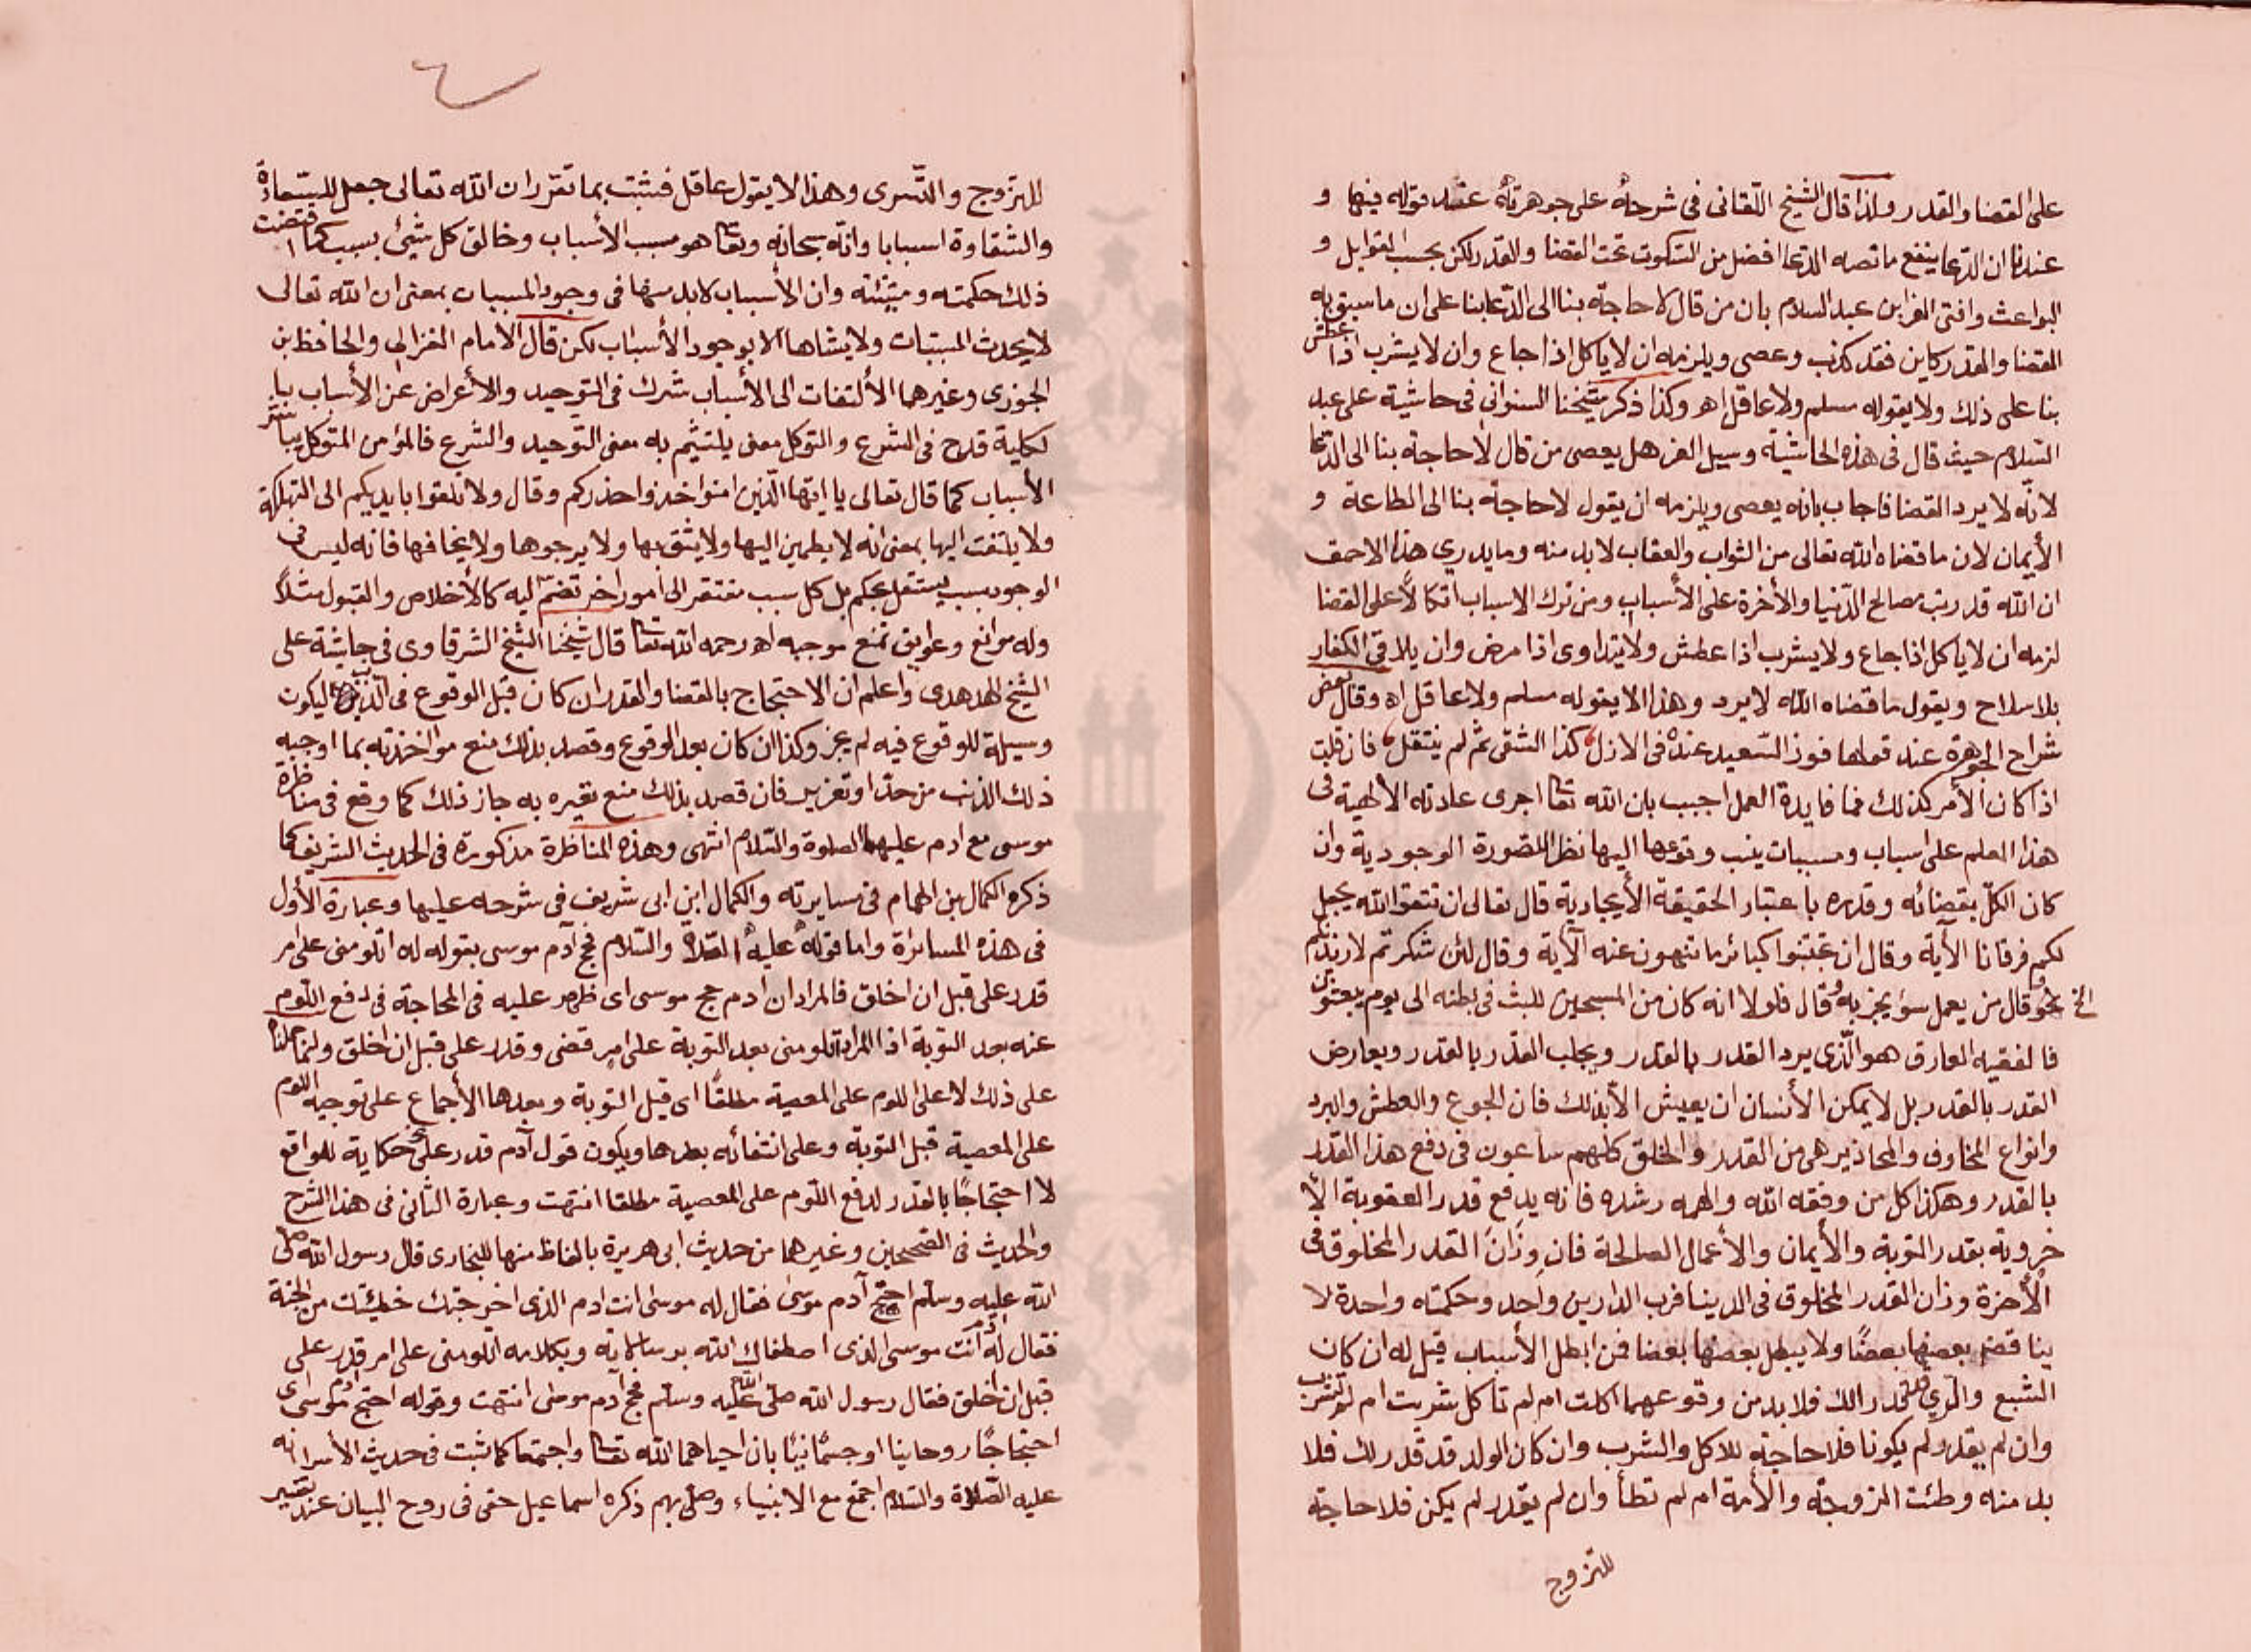 على القضا والقدر ولذا قال الشيخ اللقانى فى شرحه على جوهرته عند قوله فيها و
عندنا ان الدعا ينفع ما نصه الدعا افضل من السكوت تحت القضا والقدر لكن بحسب القوابل و
البواعث وافتى العز ابن عبد السلام بان من قال لا حاجة بنا الى الدعا بنا على ان ما سبق به
القضا والقدر كاين فقد كذب وعصى ويلزمه ان لا ياكل اذا جاع وان لا يشرب اذا عطش
بنا على ذلك ولا يقوله مسلم ولا عاقل اهـ وكذا ذكر شيخنا السنوانى فى حاشية على عبد
السلام حيث قال فى هذه الحاشية وسيل العز هل يعصى من قال لا حاجة بنا الى الدعا
لانه لا يرد القضا فاجاب بانه يعصى ويلزمه ان يقول لا حاجة بنا الى الطاعة و
الأيمان لان ما قضاه الله تعالى من الثواب والعقاب لا بد منه وما يدرى هذا الاحمق
ان الله قد رتب مصالح الدنيا والأخرة على الأسباب ومن ترك الاسباب اتكالاً على القضا
لزمه ان لا ياكل اذا جاع ولا يشرب اذا عطش ولا يتداوى اذا مرض وان يلاقى الكفار
بلا سلاح ويقول ما قضاه الله لا يرد وهذا لا يقوله مسلم ولا عاقل اه وقال بعض
شراح الجوهرة عند قولها فوز السعيد عنده فى الازل كذا الشقى ثم لم ينتقل فان قلت
اذا كان الأمر كذلك فما فايدة العمل اجيب بان الله تعا اجرى عادته الألهية فى
هذا العلم على اسباب ومسببات ينسب وقوعها اليها نظر اللصورة الوجودية وان
كان الكل بقضائه وقدره با عتبار الحقيقة الأيجادية قال تعالى ان تتقوا الله يجعل
لكم فرقانا الآية وقال ان تجتنبوا كبائر ما تنهون عنه الآية وقال لئن شكرتم لازيدنكم
الخ نحو وقال من يعمل سؤ يجز به قال فلولا انه كان من المسبحين للبث فى بطنه الى يوم يبعثون
فا لفقيه العارف هو الذى يرد القدر بالقدر ويجلب القدر بالقدر ويعارض
القدر بالقدر بل لا يمكن الأنسان ان يعيش الا بذلك فان الجوع والعطش والبرد
وانواع المخاوف والمحاذير هى من القدر والخلق كلهم ساعون فى دفع هذا القدر
بالقدر وهكذا كل من وفقه الله والهمه رشده فانه يدفع قدر العقوبة الأ
خروية بقدر التوبة والأيمان والأعمال الصالحة فان وزان القدر المخلوق فى
الأخرة وزان القدر المخلوق فى الدينا فرب الدارين واحد وحكمته واحدة لا
يناقض بعضها بعضًا ولا يبطل بعضها بعضا فمن ابطل الأسباب قيل له ان كان
الشبع والرى قد قدرا لك فلا بد من وقوعهما اكلت ام لم تاكل شربت ام لم تشرب
وان لم يقدر لم يكونا فلا حاجة للاكل والشرب وان كان الولد قد قدر لك فلا
بد منه وطئت الزوجة والأمة ام لم تطأ وان لم يقدر لم يكن فلا حاجة
للتزوج
للتزوج والتسرى وهذا لا يقول عاقل فثبت بما تقرر ان الله تعالى جعل للسعادة
والشقاوة اسبابا وانه سبحانه وتعا هو مسبب الأسباب وخالق كل شئ بسبب كما اقتضت
ذلك حكمته ومشيئته وان الأسباب لا بد منها فى وجود المسببات بمعنى ان الله تعالى
لا يحدث المسببات ولا يشاها الا بوجود الأسباب لكن قال الأمام الغزالى والحافظ بن
الجوزى وغيرهما الألتفات الى الأسباب شرك فى التوحيد والأعراض عن الأسباب با
لكلية قدح فى الشرع والتوكل معنى يلتئم به معنى التوحيد والشرع فالمؤمن المتوكل يباشر
الأسباب كما قال تعالى يا ايتها الذين امنوا خذوا حذركم وقال ولا تلقوا بايديكم الى التهلكة
ولا يلتفت اليها بمعنى انه لا يطمين اليها ولا يثق بها ولا يرجوها ولا يخافها فانه ليس فى
الوجود سبب يستقل بحكم بل كل سبب مفتقر الى امور اخر تضم اليه كالأخلاص والقبول مثلاً
وله موانع وعوايق تمنع موجبه اهـ رحمه الله تعا قال شيخنا الشيخ الشرقاوى فى حاشية على
الشيخ الهدهدى واعلم ان الاحتجاج بالقضا والقدر ان كان قبل الوقوع فى الذنب ليكون
وسيلة للوقوع فيه لم يجز وكذا ان كان بعد الوقوع وقصد بذلك منع مواخذته بما اوجبه
ذلك الذنب من حد او تعزير فان قصد بذلك منع تعيره به جاز ذلك كما وقع فى مناظرة
موسى مع ادم عليهما الصلوة والسلام انتهى وهذه المناظرة مذكورة فى الحديث الشريف كما
ذكره الكمال بن الهمام فى مسايرته والكمال ابن ابى شريف فى شرحه عليها وعبارة الأول
فى هذه المسائرة واما قوله عليه الصلاة والسلام فحج آدم موسى بقوله له اتلومنى على امر
قدر على قبل ان اخلق فالمراد ان ادم حج موسى اى ظهر عليه فى المحاجة فى دفع اللوم
عنه بعد التوبة اذا المراد اتلومنى بعد التوبة على امر قضى وقدر على قبل ان اخلق وانما حملنا
على ذلك لا على اللوم على المعصية مطلقًا اى قبل التوبة وبعدها الأجماع على توجيه اللوم
على المعصية قبل التوبة وعلى انتفائه بعدها ويكون قول آدم قدر على حكاية للواقع
لا احتجاجًا بالقدر لدفع اللوم على المعصية مطلقا انتهت وعبارة الثانى فى هذا الشرح
والحديث فى الصحيحين وغيرهما من حديث ابى هريرة بالفاظ منها للبخارى قال رسول الله صلى
الله عليه وسلم احتج آدم موسى فقال له موسى انت ادم الذى اخرجتك خطيئتك من الجنة
فقال له انت موسى الذى اصطفاك الله برسالاته وبكلامه اتلومنى على امر قدر على
قبل ان اخلق فقال رسول الله صلى الله عليه وسلم فحج آدم موسى انتهت وقوله احتج موسى اى
احتجاجًا روحانيا او جسمًانيًا بان احياهما الله تعا واجتمعا كما ثبت فى حديث الأسرا انه
عليه الصلاة والسلام اجتمع مع الانبياء وصلى بهم ذكره اسماعيل حقى فى روح البيان عند تفسير